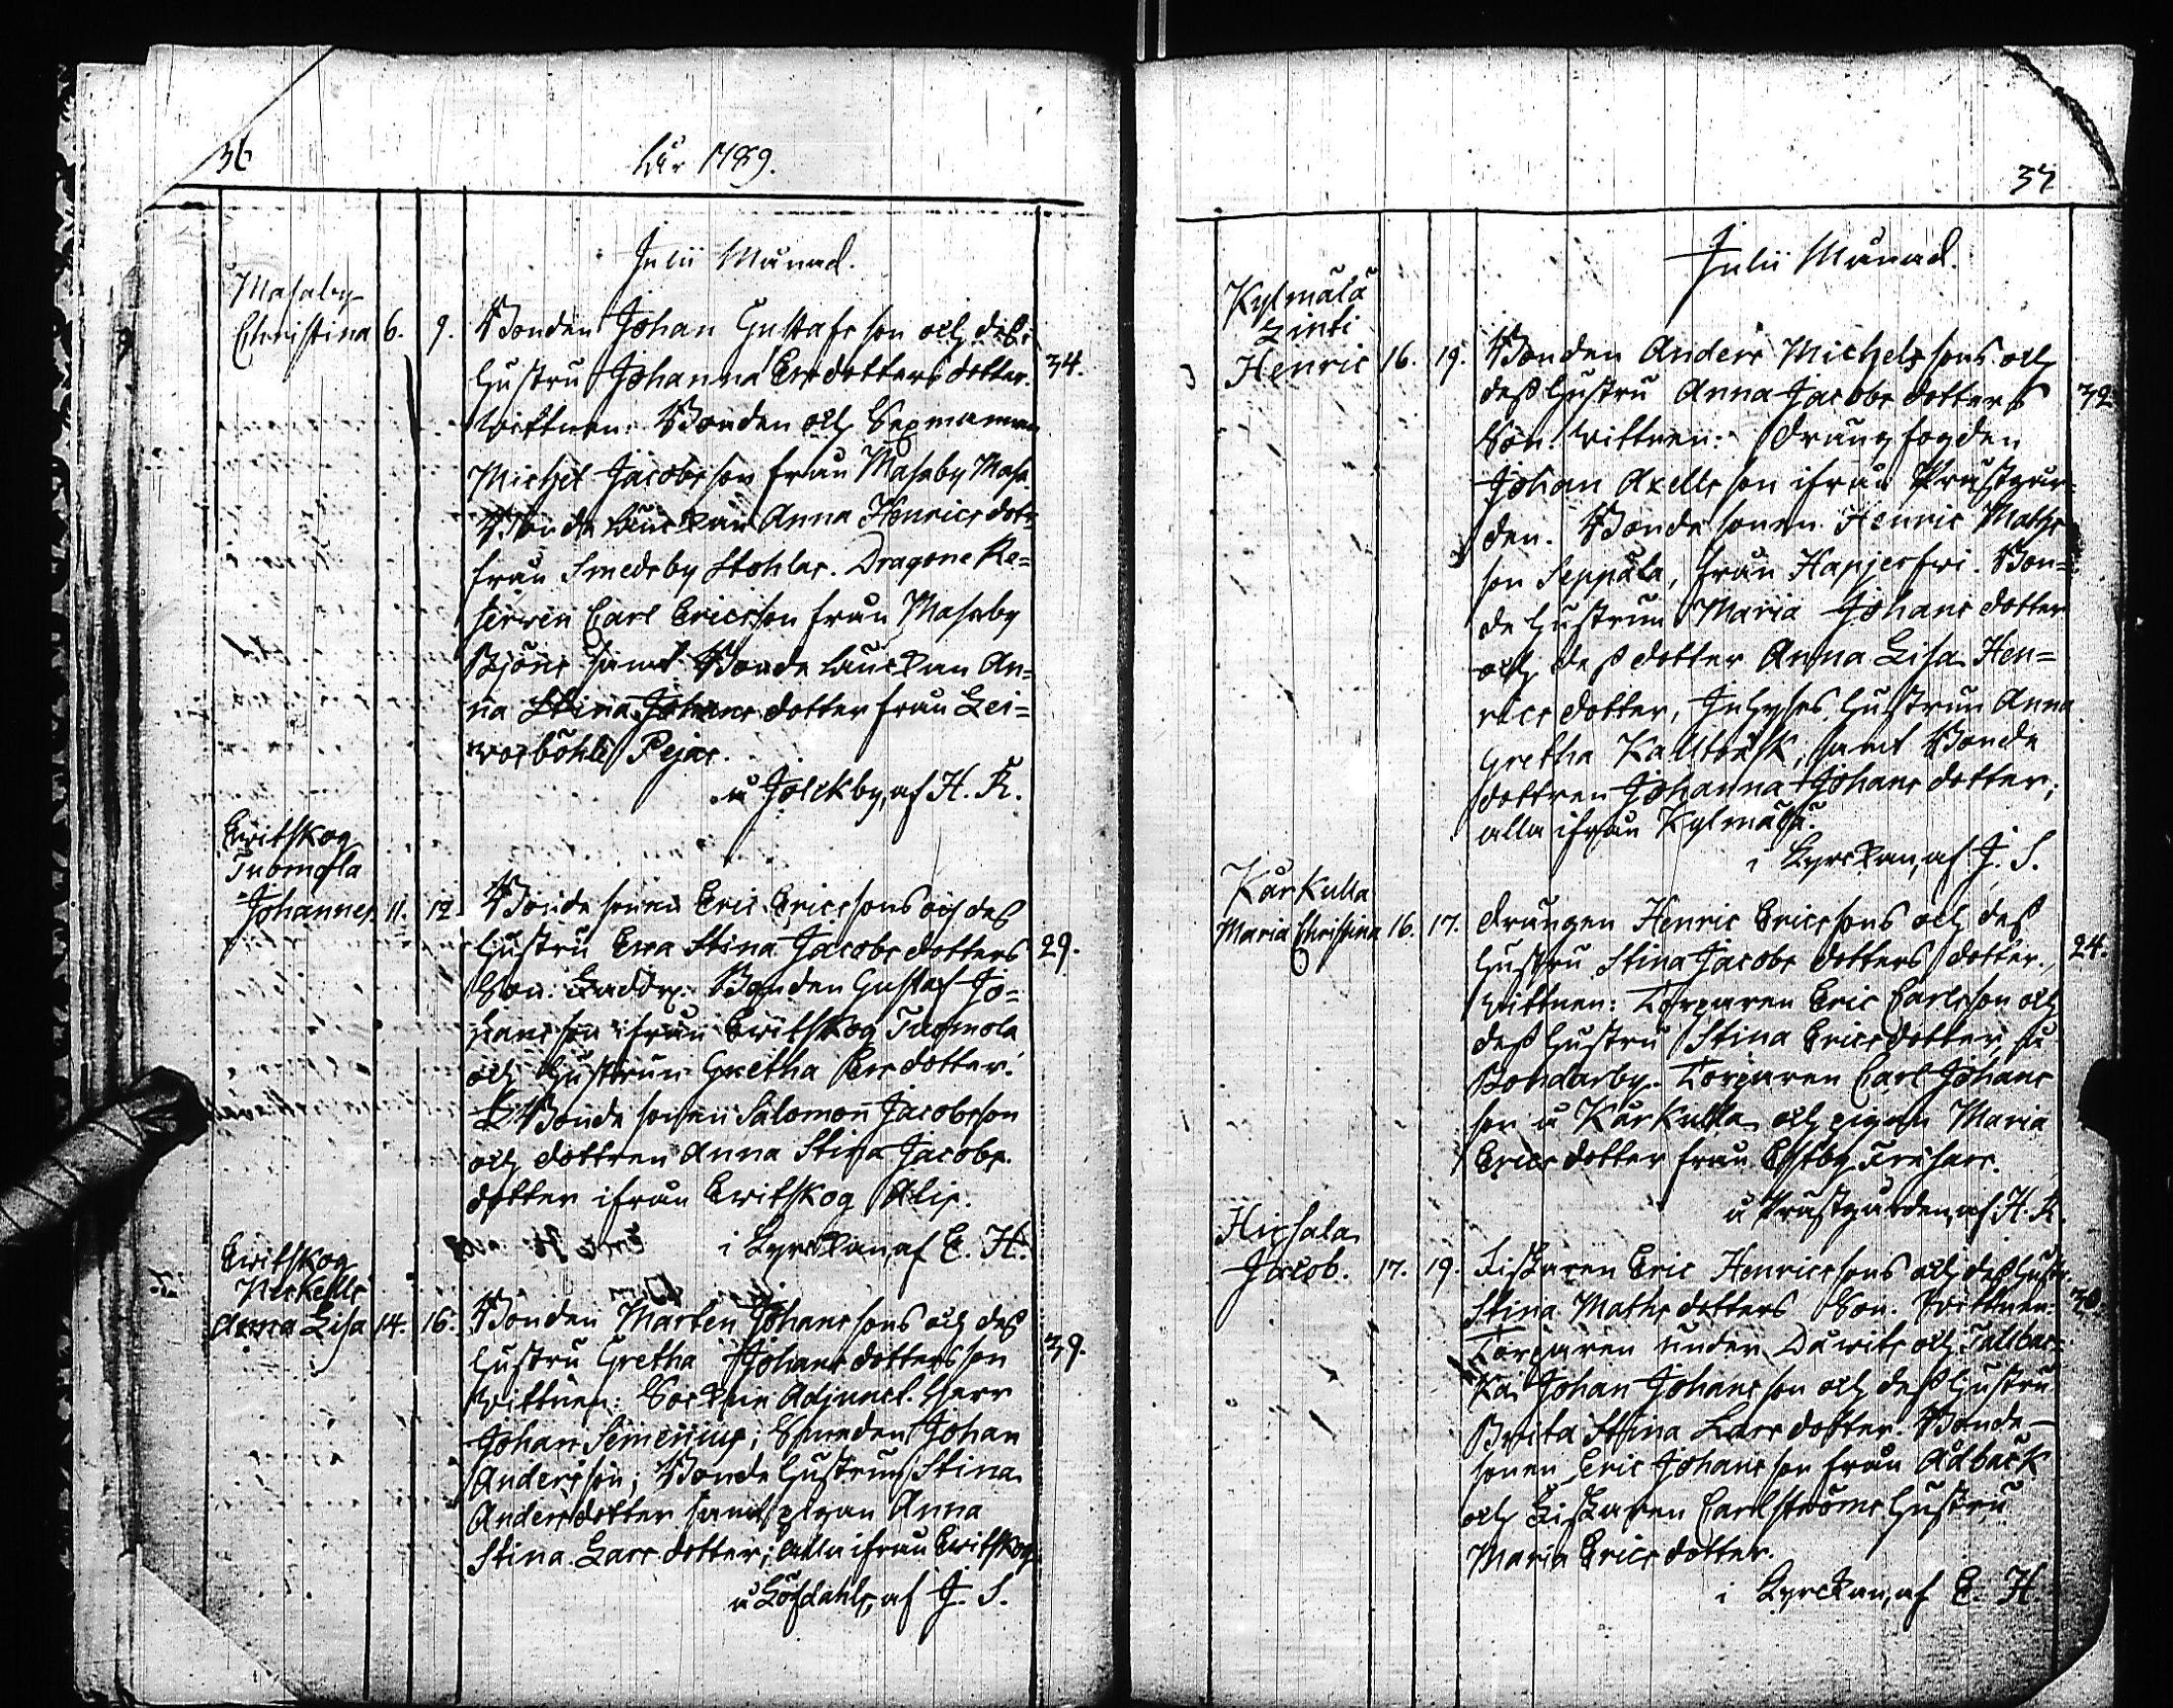 36
År 1789.
Julii Månad.
Masaby
Christina 6. 9. Bonden Johan Gustafsson och dess
Hustru Johanna Ersdotters dotter. 34.
Wittnen: Bonden och Sexmannen
Michel Jacobsson från Masaby Masa
Bonde Änckan Anna Henricsdotr
från Smedsby Stohlar. Dragone Re=
serven Carl Ericsson från Masaby
Bjöns samt Bonde Änckan An=
na Stina Johansdotter från Lei=
vosböhle Pejar.
å Jolckby, af H. R.
Evitskog
Tuomola
Johannes. 11. 12. Bondesonen Eric Ericssons och dess
Hustru Ewa Stina Jacobsdotters 29.
Son. Faddr. Bonden Gustaf Jo=
hansson ifrån Evitskog Tuomola
och Hustrun Gretha Ersdotter.
Bondesonen Salomon Jacobsson
och dottren Anna Stina Jacobs
dotter ifrån Evitskog Alis.
i Kyrckan, af E. H.
Evitskog
Neskells
Anna Lisa 14. 16. Bonden Marten Johanssons och dess
Hustru Gretha Johansdotters son 39.
Wittnen: Sockne Adjunct. Herr
Johan Simenius; Smeden Johan
Andersson; Bonde Hustrun Stina
Andersdotter samt pigan Anna
Stina Larsdotter; alla ifrån Evitskog
å Löfdahls, af J. S.
37
Julii Månad.
Kylmälä
Henric 16. 19. Bonden Anders Michelssons och
dess Hustru Anna Jacobsdotters 32
Son. Wittnen: Drängfogden
Johan Axellsson ifrån Prästgår=
den. Bondesonen Henric Maths
son Seppälä, från Hapjerfwi. Bon=
de Hustrun Maria Johansdotter
och dess dotter Anna Lisa Hen=
ricsdotter, Inhyses Hustrun Anna
Gretha Kallträsk, samt Bonde
dottren Johanna Johansdotter;
alla ifrån Kylmälä.
i Kyrckan, af J. S.
Kårkulla
Maria Christina 16. 17. Drängen Henric Ericssons och dess
Hustru Stina Jacobsdotters dotter. 24.
Wittnen: Torparen Eric Carlsson och
dess Hustru Stina Ericsdotter å
Bondarby. Torparen Carl Johans
son å Kårkulla och pigan Maria
Ericsdotter från Estby Trehars.
å Prästgården, af H. R.
Hirsala
Jacob. 17. 19. Fiskaren Eric Henricssons och dess Hustr.
Stina Mathsdotters Son. Wittnen: 30.
Torparen under Dåwits och Tallbac=
ka Johan Johansson och dess Hustru
Brita Stina Larsdotter. Bonde=
sonen Eric Johansson från Ådbäck
och Fiskaren Carlströms Hustru
Maria Ericsdotter.
i Kyrckan, af E. H